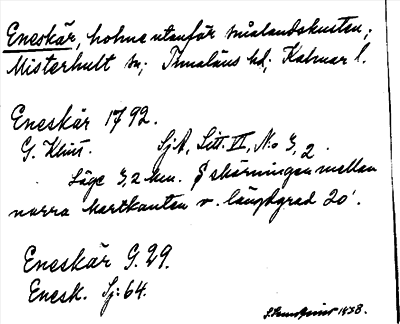 Eneskär, holme utanför smålandskusten;
Misterhult sn; Tunaläns hd; Kalmar l.
Eneskär 1792.
G. Klint. SjA, Litt. II, No 3,2.
Läge 3,2 km. S skärningen mellan
norra kartkanten o. längdgrad 20'.
Eneskär G. 29.
Enesk. Sj: 64.
1938.